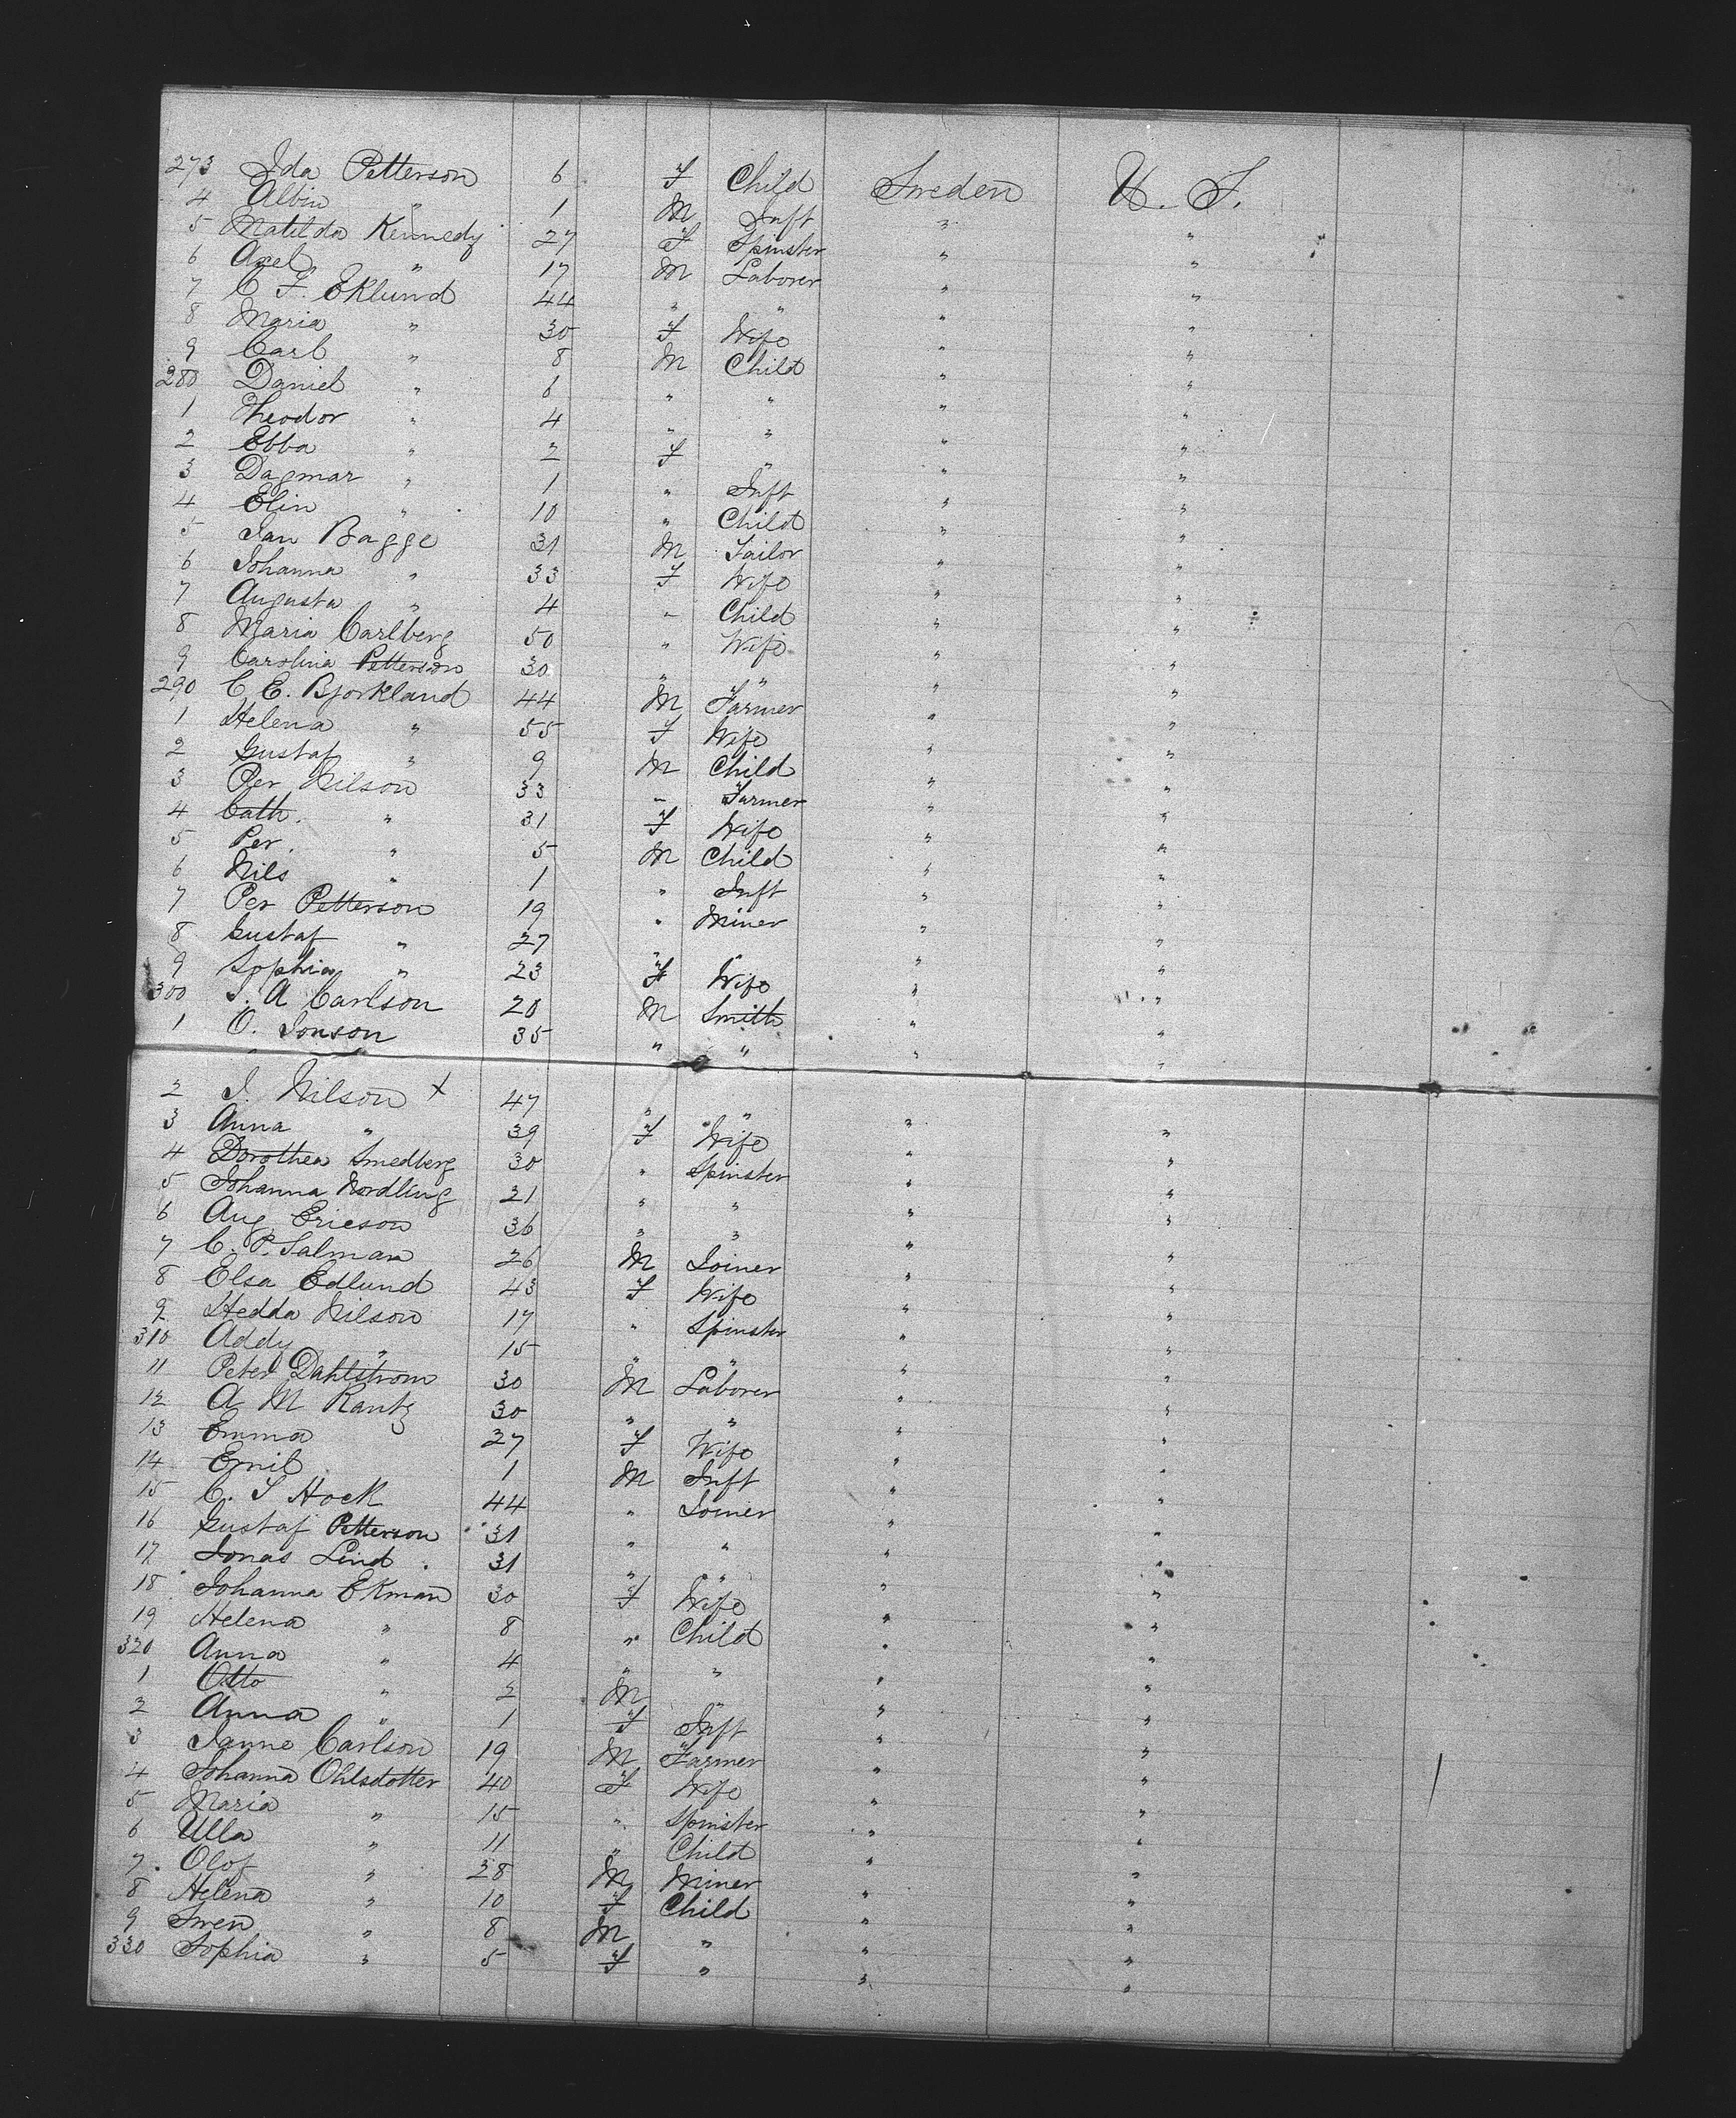 273 Ida Petterson 6 F Child Sweden U. S.
4 Albin " 1 M Inft " "
5 Matilda Kennedy 27 F Spinster " "
6 Axel " 17 M Laborer " "
7 C F. Eklund 44 " " " "
8 Maria " 30 F Wife " "
9 Carl " 8 M Child " "
280 Daniel " 6 " " " "
1 Theodor " 4 " " " "
2 Ebba " 2 F " " "
3 Dagmar " 1 " Inft " "
4 Elin " 10 " Child " "
5 Jan Bagge 31 M Tailor " "
6 Johanna " 33 F Wife " "
7 Augusta " 4 " Child " "
8 Maria Carlberg 50 " Wife " "
9 Carolina Petterson 30 " " " "
290 C. E. Bjorkland 44 M Farmer " "
1 Helena " 55 F Wife " "
2 Gustaf " 9 M Child " "
3 Per Nilson 33 " Farmer " "
4 Cath. " 31 F Wife " "
5 Per. " 5 M Child " "
6 Nils " 1 " Inft " "
7 Per Petterson 19 " Miner " "
8 Gustaf " 27 " " " "
9 Sophia " 23 F Wife " "
300 J. A Carlson 20 M Smith " "
1 O. Jonson 35 " " " "
2 J. Nilson x 47 " " " "
3 Anna " 39 F Wife " "
4 Dorothea Smedberg 30 " Spinster " "
5 Johanna Nordling 21 " " " "
6 Aug. Ericson 36 " " " "
7 C. P. Salman 26 M Joiner " "
8 Elsa Edlund 43 F Wife " "
9 Hedda Nilson 17 " Spinster " "
310 Addy " 15 " " " "
11 Peter Dahlstrom 30 M Laborer " "
12 A M Rantz 30 " " " "
13 Emma 27 F Wife " "
14 Emil 1 M Inft " "
15 C. J Hock 44 " Joiner " "
16 Gustaf Petterson 31 " " " "
17 Jonas Lind 31 " " " "
18 Johanna Ekman 30 F Wife " "
19 Helena " 8 " Child " "
320 Anna " 4 " " " "
1 Otto " 2 M " " "
2 Anna " 1 F Inft " "
3 Janne Carlson 19 M Farmer " "
4 Johanna Ohlsdotter 40 F Wife " "
5 Maria " 15 " Spinster " "
6 Ulla " 11 " Child " "
7 Olof " 28 M Miner " "
8 Helena " 10 F Child " "
9 Swen " 8 M " " "
330 Sophia " 5 F " " "